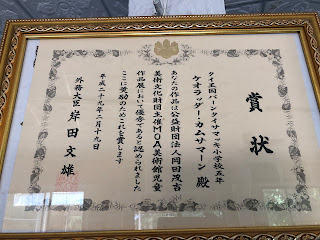 賞状
タイ王国バーンタイサマッキ小学校五年
ケオラッダー・カムサマーン 殿
あなたの作品は公益財団法人岡田茂吉
美術文化財団主催MOA美術館児童
作品展において優秀であると認められました
ここに奨励のためこれを賞します
平成二十九年二月十九日
外務大臣 岸田文雄